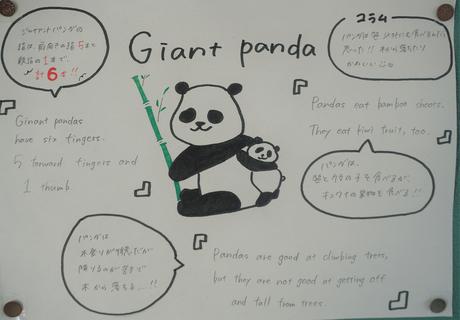 ジャイアントパンダの
指は、前向きの指5本と
親指の1本で、
計6本!!
Giant panda
コラム
パンダは笹以外にも食べるんだと
思った!! 木から落ちたり
かわいい
Ginant pandas
have six fingers.
5 forward fingers and
1 thumb.
Pandas eat bamboo shoots.
They eat kiwi fruit, too.
パンダは、
笹とタケの子を食べるが、
キウイの果物も食べる!!
パンダは
木登りが得意だが
降りるのが苦手で
木から落ちる…!!
Pandas are good at climbing trees,
but they are not good at getting off
and fall from trees.